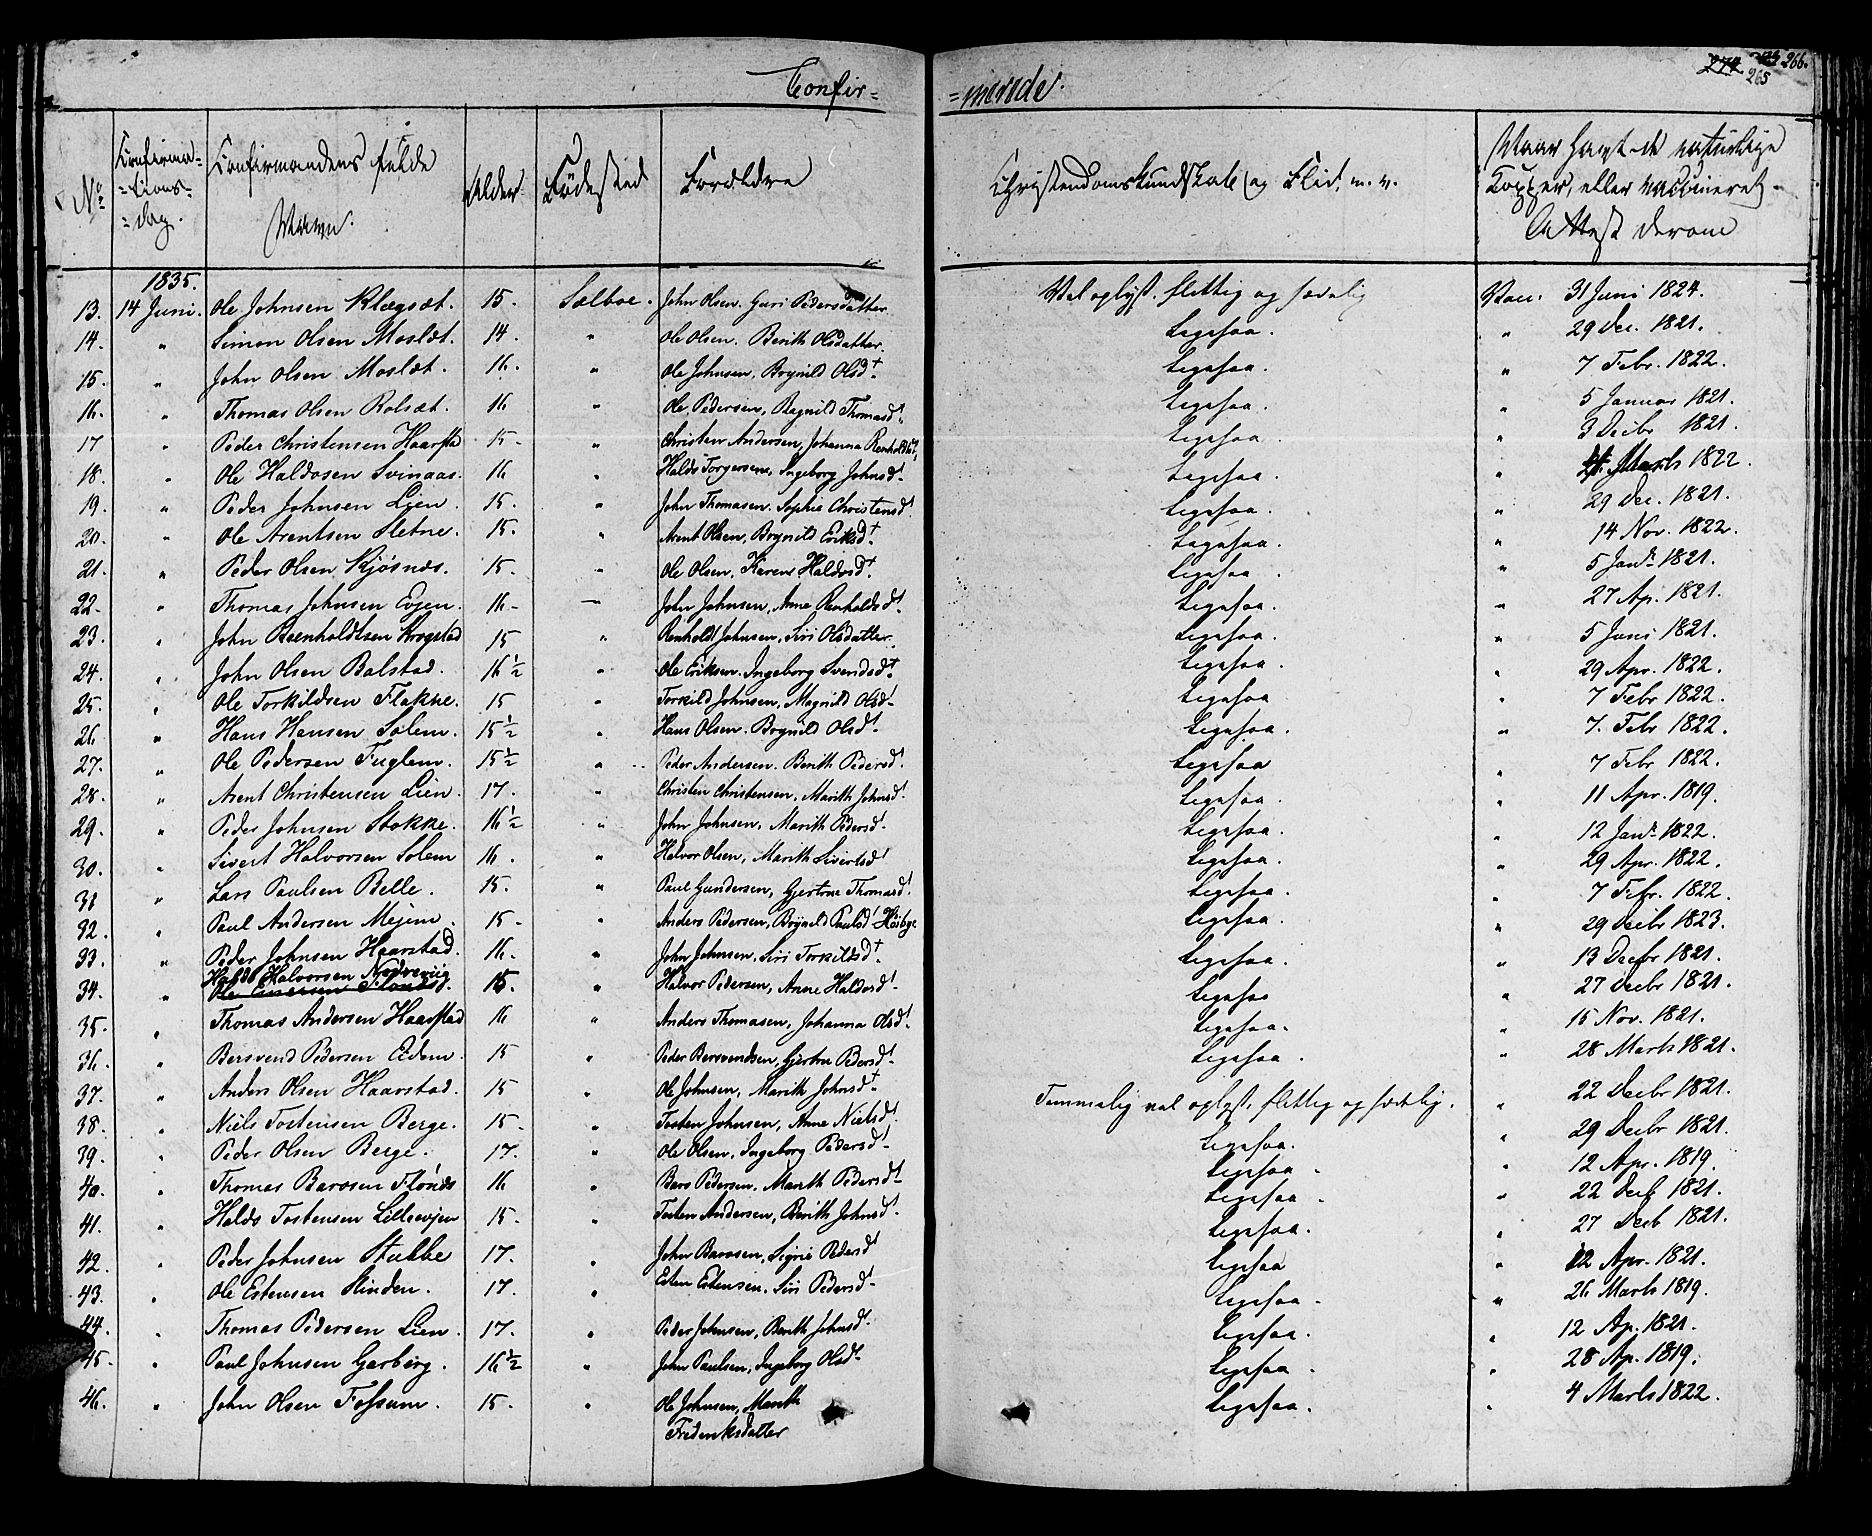 Confir= =merede.
274. 265 266.
No Confirma=tions=dag. Confirmandens fulde Navn. Alder. Födested Forældre Christendomskundskab og Flid, m. v. Naar havt de naturlige Kopper, eller vaccineret. Attest derom
1835.
13. 14 Juni. Ole Johnsen Klegset. 15. Sælboe. John Olsen. Guri Pedersdatter. Vel oplyst. flittig og sædelig Vac: 31 Juni 1824.
14. " Simon Olsen Moslet. 14. " Ole Olsen. Berith Olsdatter. Ligesaa. " 29 Dec. 1821.
15. " John Olsen Moslet. 16. " Ole Johnsen, Brynild Olsdt. Ligesaa. " 7 Febr. 1822.
16. " Thomas Olsen Rolset. 16 " Ole Pedersen, Ragnild Thomasdt. Ligesaa. " 5 Januar 1821.
17 " Peder Christensen Haarstad 15- " Christen Andersen, Johanna Renholdsdt, Ligesaa. " 3 Decbr 1821.
18. " Ole Haldosen Svinaas. 16 " Haldo Torgersen, Ingeborg Johnsdt. Ligesaa. " 4. Marts 1822.
19. " Peder Johnsen Lien. 15. " John Thomasen. Sophie Christensdt. Ligesaa. " 29 Dec. 1821.
20. " Ole Arentsen Sletne. 15. " Arent Olsen, Brynild Eriksdt. Ligesaa. " 14 Nov. 1822.
21. " Peder Olsen Kjösnes. 15. " Ole Olsen, Karen Haldosdt. Ligesaa. " 5 Janr 1821.
22. " Thomas Johnsen Evjen. 16- — John Johnsen, Anne Renholdsdt. Ligesaa. " 27 Ap. 1821.
23. " John Reenholdtsen Krogstad 15 " Renholdt Johnsen, Siri Olsdatter. Ligesaa. " 5 Juni 1821.
24. " John Olsen Balstad. 16½ " Ole Eriksen. Ingeborg Svendsdt. Ligesaa. " 29 Apr. 1822.
25. " Ole Torkildsen Flakne. 15 " Torkild Johnsen, Magnild Olsdt. Ligesaa " 7 Febr 1822.
26 " Hans Hansen Solem. 15½ " Hans Olsen. Brynild Olsdt. Ligesaa. " 7. Febr 1822.
27. " Ole Pedersen Fuglem. 15½ " Peder Andersen. Berith Pedersdt. Ligesaa " 7 Febr 1822.
28. " Arent Christensen Lien. 17. " Christen Christensen, Marith Johnsdt. Ligesaa. " 11 Apr. 1819.
29. " Peder Johnsen Stokke. 16½ " John Johnsen, Marith Pedersdt. Ligesaa. " 12 Janr 1822.
30. " Sivert Halvorsen Solem 16. " Halvor Olsen, Marith Sivertsdt Ligesaa. " 29 Apr. 1822.
31 " Lars Paulsen Belle. 15. " Paul Gundersen, Gjertrue Thomasdt. Ligesaa. " 7 Febr. 1822.
32. " Paul Andersen Mejem. 15- " Anders Pedersen, Brynild Paulsdt Högbye Ligesaa. " 29 Decbr 1823.
33. " Peder Johnsen Haarstad. 16. " John Johnsen, Siri Torkildsdt. Ligesaa. " 13 Decbr 1821.
34. " Haldo Halvorsen Nordevig 15. " Halvor Pedersen, Anne Haldosdt. Ligesaa " 27 Decbr 1821.
35. " Thomas Andersen Haarstad 16 " Anders Thomasen, Johanna Olsdt. Ligesaa. " 15 Nov. 1821.
36. " Bersvend Pedersen Eidem. 15 " Peder Bersvendsen, Gjertru Bersdt. Ligesaa. " 28 Marts 1821.
37. " Anders Olsen Haarstad. 15 " Ole Johnsen, Marith Johnsdt. Temmelig vel oplyst, flittig og sædelig. " 22 Decbr 1821.
38. " Niels Tostensen Berge. 15. " Tosten Johnsen, Anne Nielsdt. Ligesaa. " 29 Decbr 1821.
39. " Peder Olsen Berge. 17. " Ole Olsen, Ingeborg Pedersdt. Ligesaa. " 12 Apr. 1819.
40. " Thomas Barosen Flönes 16 " Baro Pedersen. Marith Pedersdt. Ligesaa. " 22 Decb 1821.
41. " Haldo Tostensen Lilleevjen 15. " Tosten Andersen, Berith Johnsdt. Ligesaa. " 27 Decb 1821.
42. " Peder Johnsen Stubbe 17. " John Barosen, Sigrie Pedersdt Ligesaa " 12 Apr. 1821.
43. " Ole Estensen Slinden. 17. " Esten Estensen. Siri Pedersdt. Ligesaa. " 26 Marts 1819.
44. " Thomas Pedersen Lien. 17. " Peder Johnsen, Berith Johnsdt. Ligesaa. " 12 Ap. 1821.
45. " Paul Johnsen Garberg. 16½ " John Paulsen, Ingeborg Olsdt. Ligesaa. " 28 Ap. 1819.
46. " John Olsen Fossum. 15. " Ole Johnsen, Marith Ligesaa. " 4 Marts 1822.
Frederiksdatter